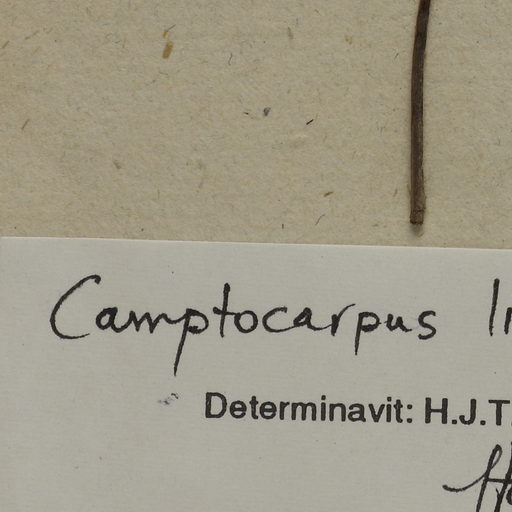 Camptocarpus
Determinavit: H.J.T.